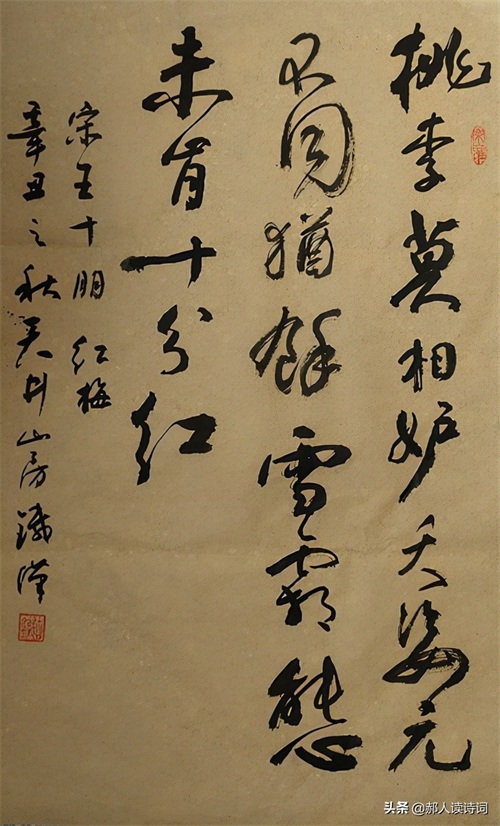 桃李莫相妒夭姿元
不同猶餘雪霜態
未肯十分紅
宋王十朋 红梅
辛丑之秋井山房鐵漢
头条 @郝人读诗词